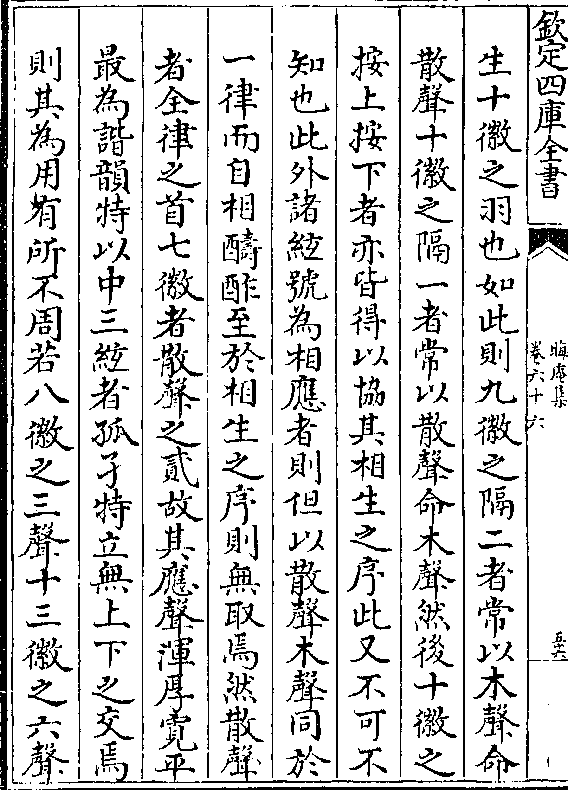 欽定四庫全書
晦庵集
卷六十六
生十徽之羽也如此則九徽之隔二者常以木聲命
散聲十徽之隔一者常以散聲命木聲然後十徽之
按上按下者亦皆得以協其相生之序此又不可不
知也此外諸絃號為相應者則但以散聲木聲同於
一律而自相醻酢至於相生之序則無取焉然散聲
者全律之首七徽者散聲之貳故其應聲渾厚寛平
最為諧韻特以中三絃者孤孑特立無上下之交焉
則其為用有所不周若八徽之三聲十三徽之六聲